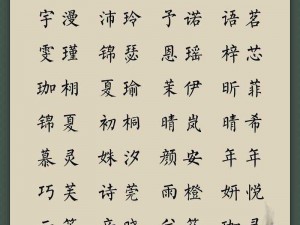 宇漫 沛玲 予诺 语茗
雯瑾 锦瑟 恩瑶 梓芯
珈栩 夏瑜 茉伊 昕菲
锦夏 初桐 晴岚 晴希
慕灵 姝汐 颜安 年年
巧芙 诗莞 雨橙 妍悦